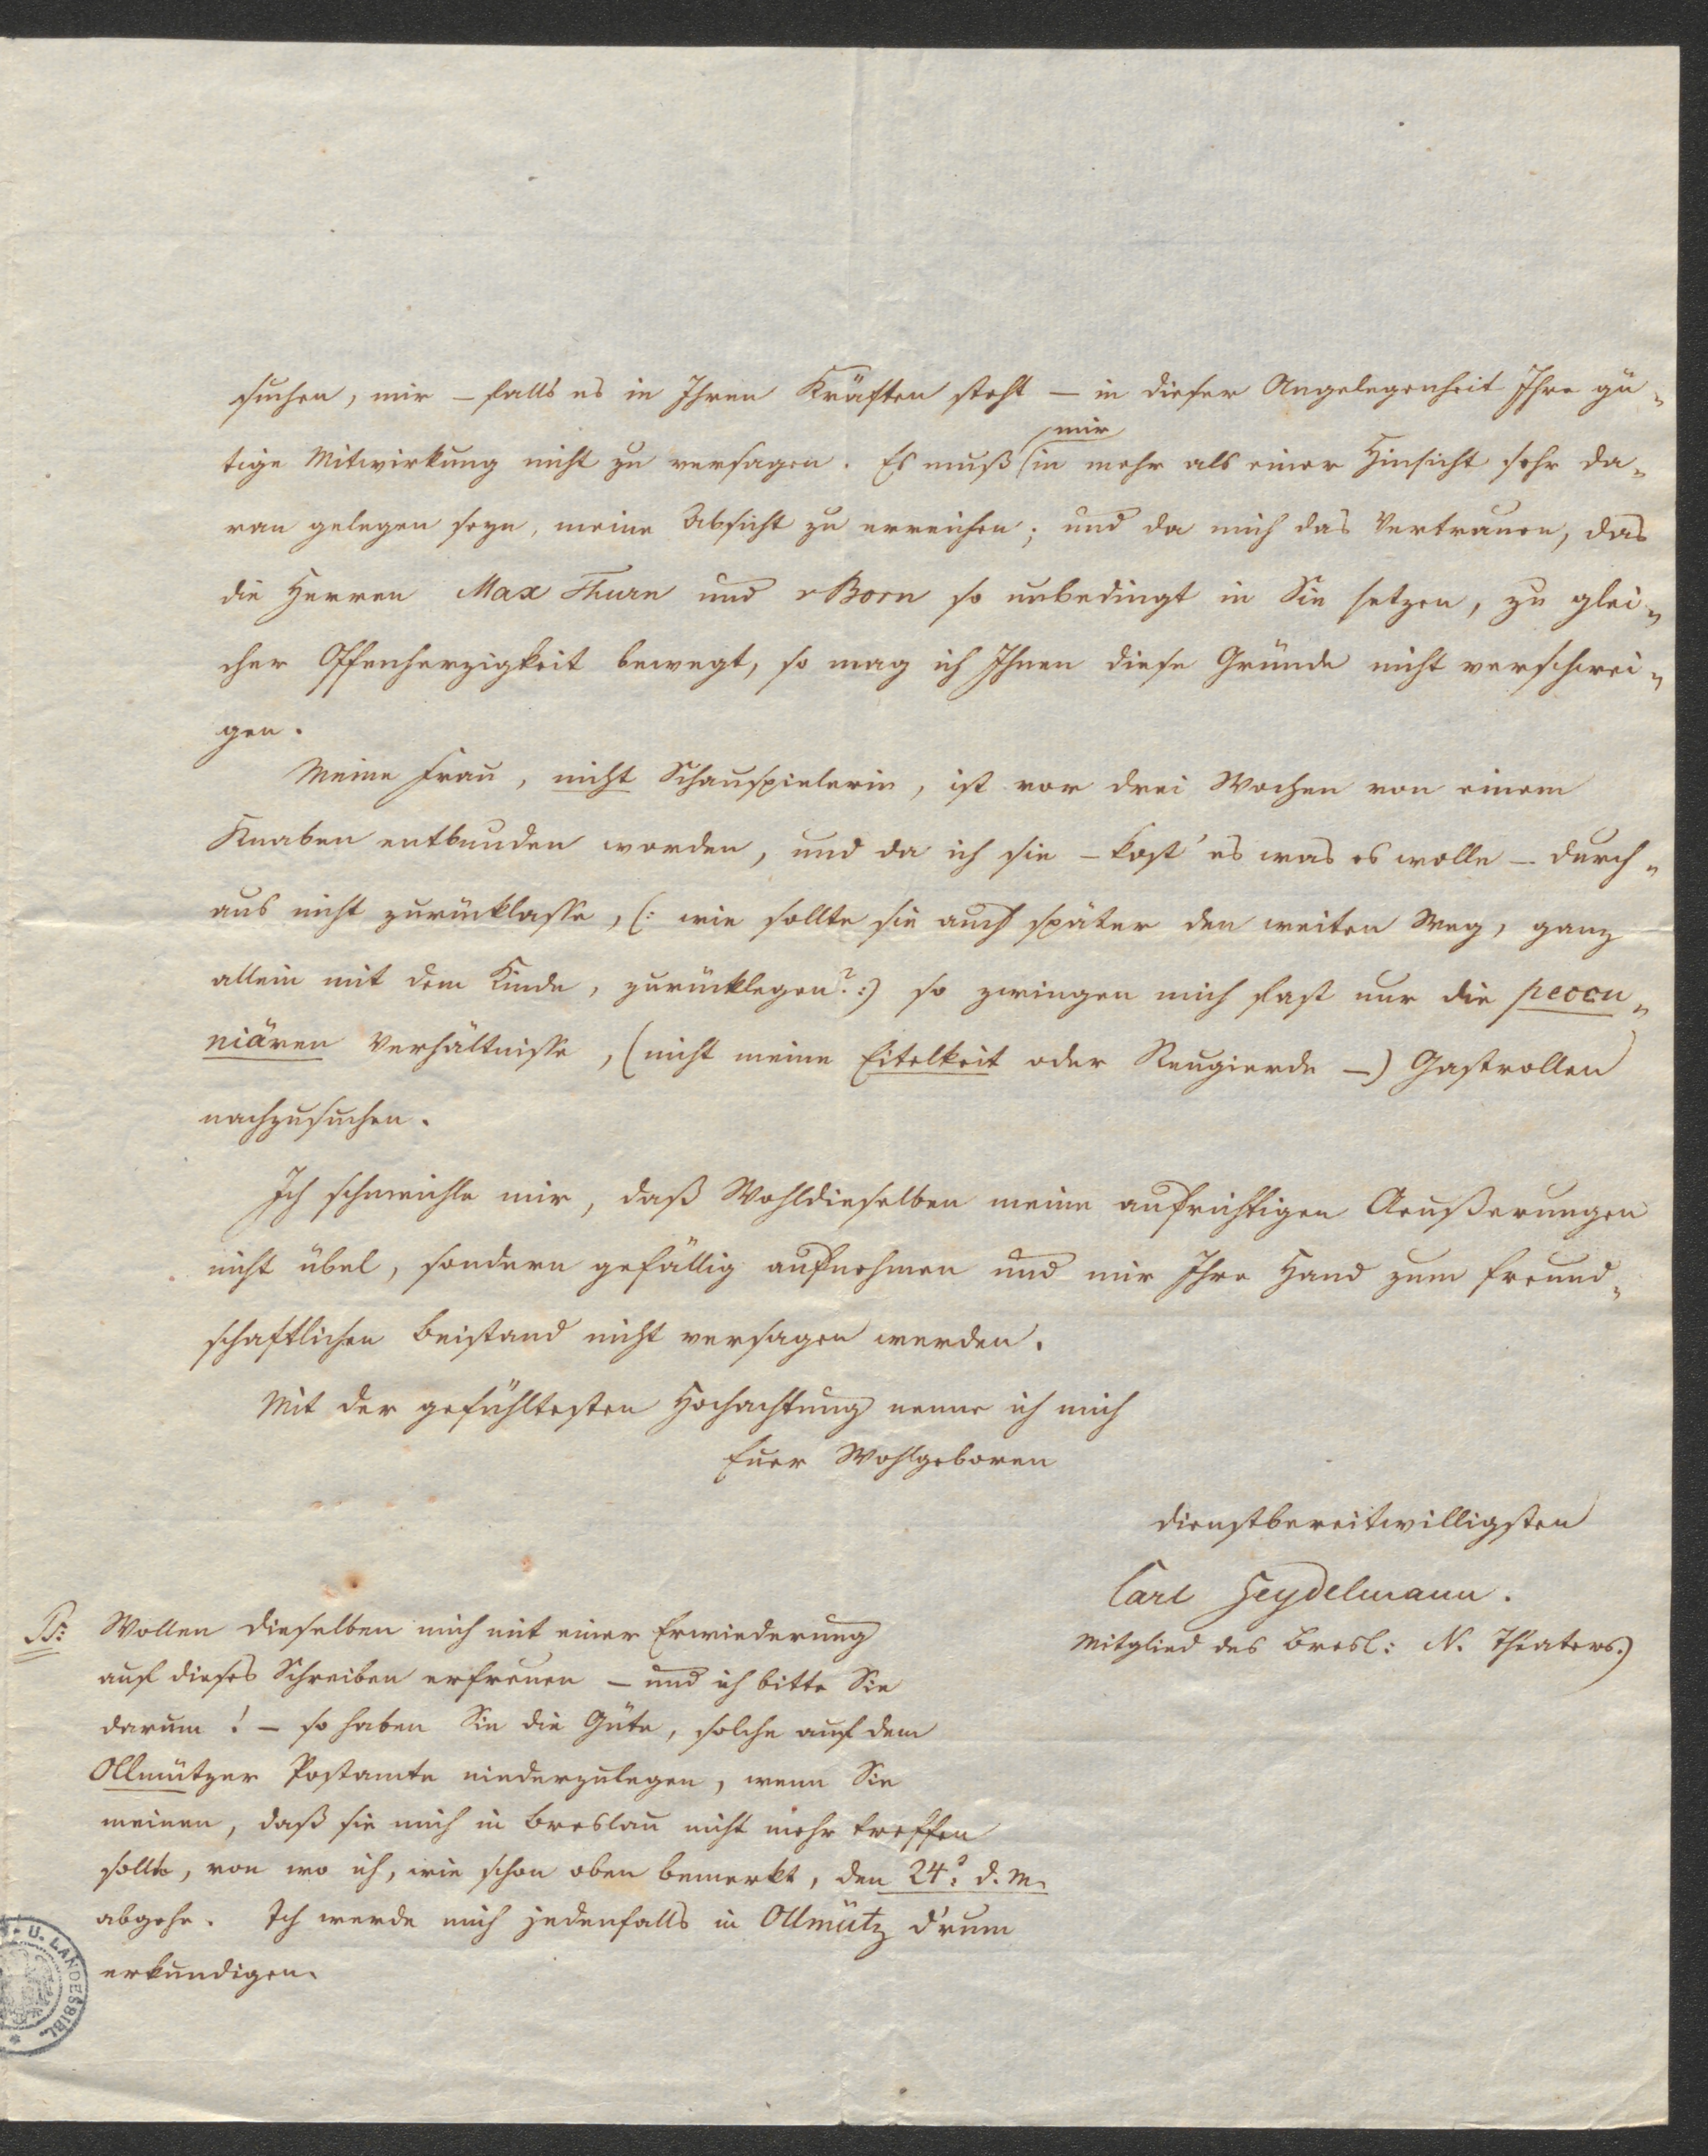 suchen, mir – falls es in Ihren Kräften steht – in dieser Angelegenheit Ihre gü-
mir
tige Mitwirkung nicht zu versagen. Es muß in mehr als einer Hinsicht sehr da-
ran gelegen seyn, meine Absicht zu erreichen; und da mich das Vertrauen, das
die Herren Max Thurn und Born so unbedingt in Sie setzen, zu glei-
cher Offenherzigkeit bewegt, so mag ich Ihnen diese Gründe nicht verschwei-
gen.
Meine Frau, nicht Schauspielerin, ist vor drei Wochen von einem
Knaben entbunden worden, und da ich sie – kost' es was es wolle – durch-
aus nicht zurücklasse, (: wie sollte sie auch später den weiten Weg, ganz
allein mit dem Kinde, zurücklegen? :) so zwingen mich fast nur die peccu-
niären Verhältnisse, (nicht meine Eitelkeit oder Neugierde –) Gastrollen
nachzusuchen.
Ich schmeichle mir, daß Wohldieselben meine aufrichtigen Aeußerungen
nicht übel, sondern gefällig aufnehmen und mir Ihre Hand zum freund-
schaftlichen Beistand nicht versagen werden.
Mit der gefühltesten Hochachtung nenne ich mich
Euer Wohlgeboren
dienstbereitwilligsten
Carl Seydelmann.
Mitglied des Bresl: N. Theaters.)
PS: Wollen dieselben mich mit einer Erwiederung
auf dieses Schreiben erfreuen – und ich bitte Sie
darum! – so haben Sie die Güte, solche auf dem
Ollmützer Postamte niederzulegen, wenn Sie
meinen, daß sie mich in Breslau nicht mehr treffen
sollte, von wo ich, wie schon oben bemerkt, den 24t. d. M.
abgehe. Ich werde mich jedenfalls in Ollmütz d'rum
erkundigen.
U. LANDESBIBL.